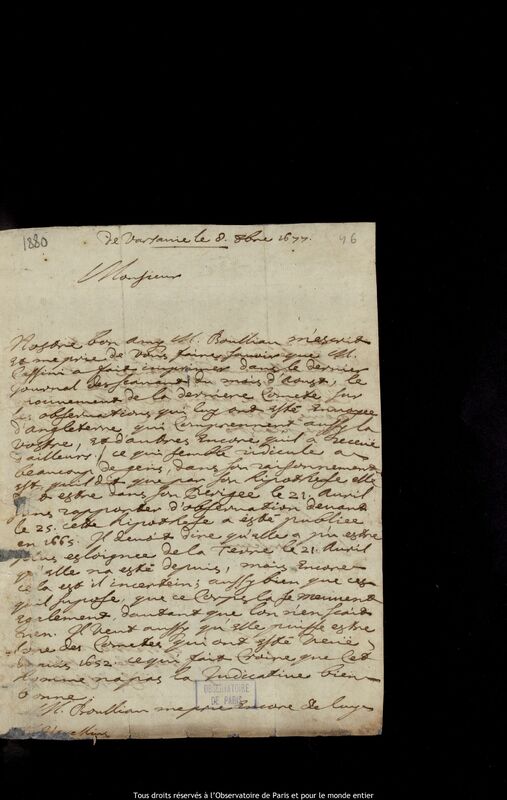 1880
De Varsavie le 8. 8bre 1677.
46
Monsieur
Nostre bon amy M. Boulliau m'escrit
et me prie de vous faire scavoir que M.
Cassini a fait imprimer dans le dernier
Journal des scavants du mois d'Aoust, le
mouvement de la derniere Comete sur
les observations qui luy ont esté envoyee
d'angleterre, qui comprennent aussy la
vostre, et d'autres encore quil a receue
d'ailleurs; ce qui semble ridicule a
beaucoup de gens, dans son raisonnement
est, quil dit que par son hipothese elle
a deu estre dans son Perigee le 21. Avril
sans rapporter d'observation devant
le 25. cette hipothese a esté publiee
en 1665. Il devoit dire qu'elle a pu estre
plus esloignee de la Terre le 21 Avril
qu'elle na esté depuis, mais encore
cela est il incertein; aussy bien que ce
quil supose, que ce Corps la se meuvent
egalement, d'autant que lon nen scait
rien. Il veut aussy qu'elle puisse estre
l'une des Cometes qui ont esté veues
depuis 1652. ce qui fait croire que cet
homme na pas la Judicative bien
bonne.
M. Boulliau me prie encore de
OBSERVATOIRE
DE PARIS
Tous droits réservés à l'Observatoire de Paris et pour le monde entier